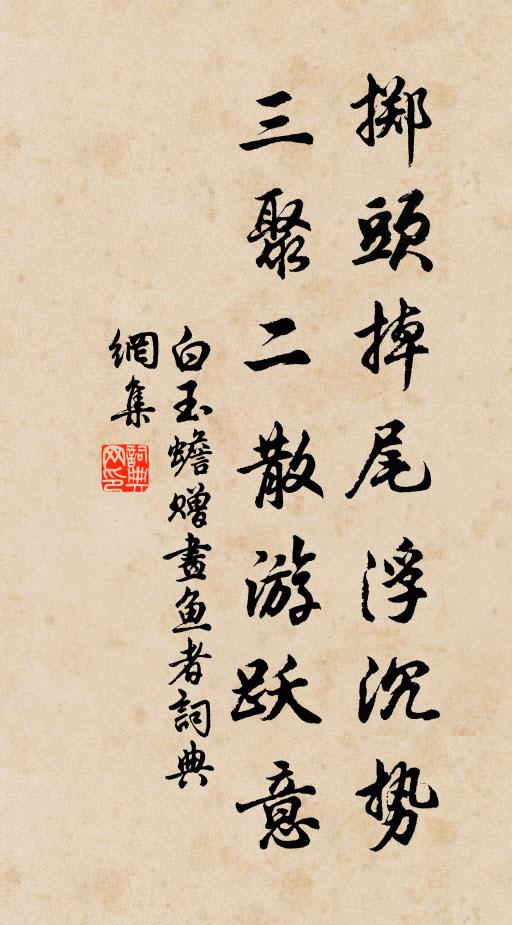 掷頭掉尾浮沉势
三聚二散游跃意
白玉蟾赠畫鱼者詞典
網集
詞典网印